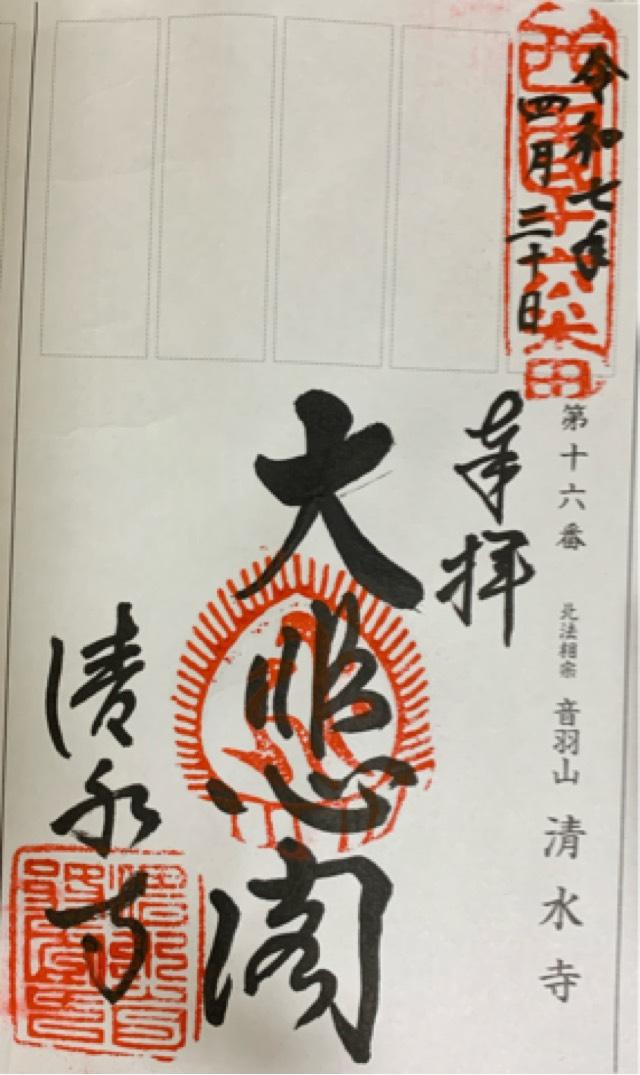 令和七年
四月三十日
西国十六番
第十六番 北法相宗 音羽山 清水寺
奉拝
大悲閣
清水寺